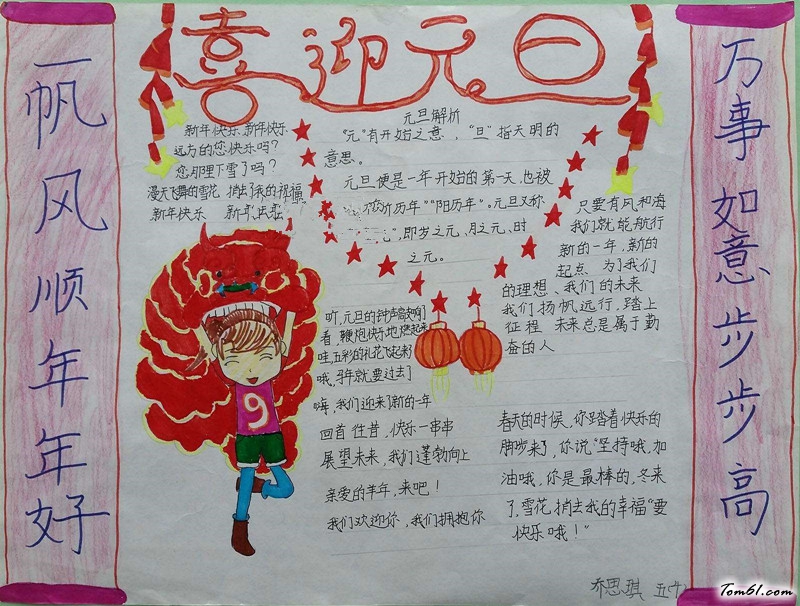 喜迎元旦
一帆风顺年年好
万事如意步步高
新年快乐 新年快乐
远方的您快乐吗?
您那里下雪了吗?
漫天飞舞的雪花 捎去我的祝福
新年快乐 新年
元旦解析
"元"有开始之意,"旦"指天明的
意思。
元旦便是一年开始的第一天,也被
历年""阳历年"。元旦又称
",即岁之元、月之元、时
之元。
只要有风和海
我们就能航行
新的一年,新的
起点 为了我们
的理想、我们的未来
我们扬帆远行,踏上
征程 未来总是属于勤
奋的人
听,元旦的钟声敲响啊
看,鞭炮快乐地燃起来
哇,五彩的礼花飞起来
哦,马年就要过去了
嗨,我们迎来了新的一年
回首往昔,快乐一串串
展望未来,我们蓬勃向上
亲爱的羊年,来吧!
我们欢迎你,我们拥抱你
春天的时候,你踏着快乐的
脚步来了,你说"坚持哦,加
油哦,你是最棒的,冬来
了,雪花捎去我的幸福"要
快乐哦!"
9
乔思琪
Tom61.com